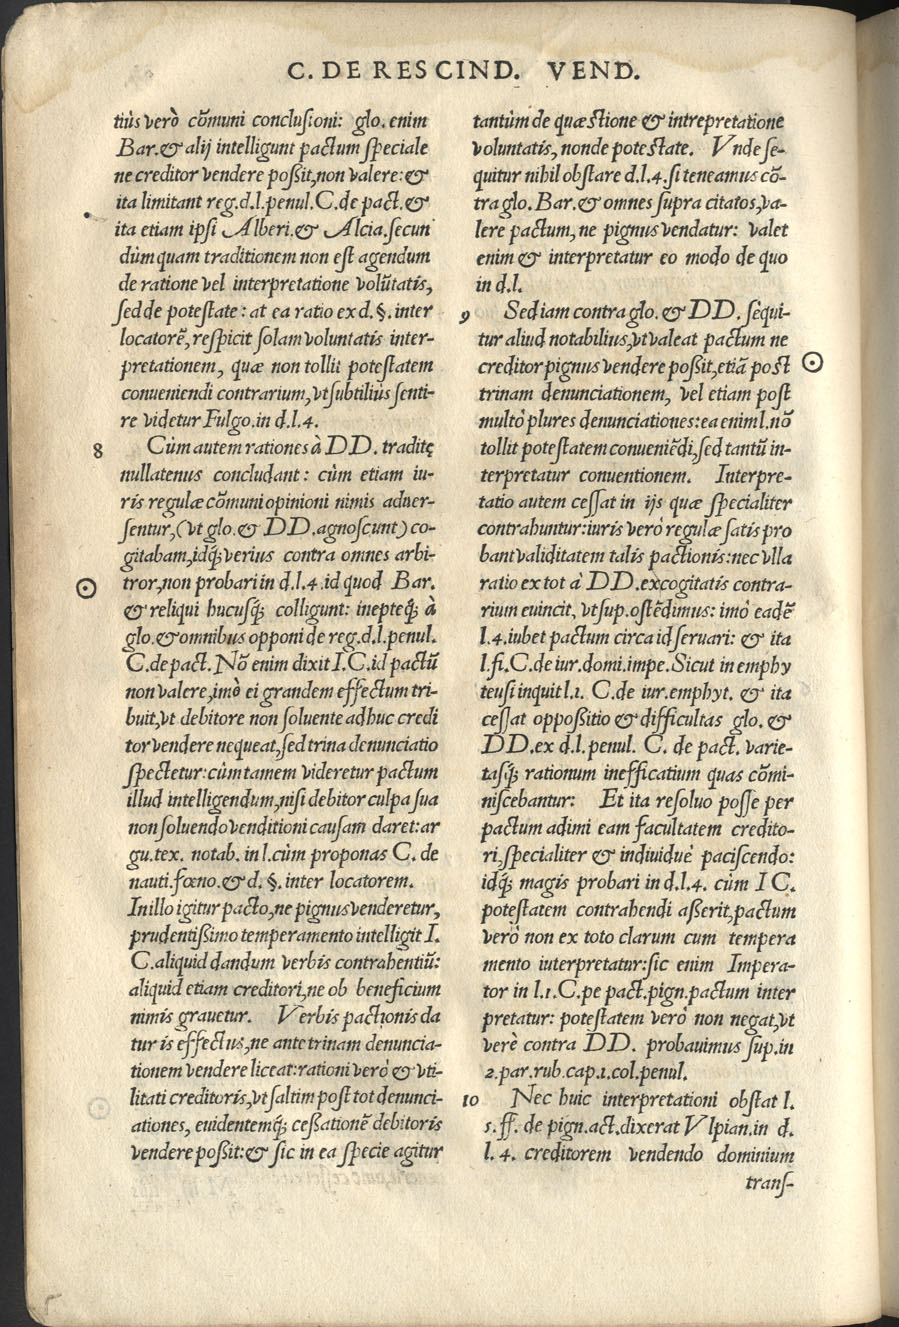 C. DE RESCIND. VEND.
tiùs verò cõmuni conclusioni: glo. enim
Bar. & alij intelligunt pactum speciale
ne creditor vendere possit, non valere: &
ita limitant reg. d. l. penul. C. de pact. &
ita etiam ipsi Alberi. & Alcia. secun
dùm quam traditionem non est agendum
de ratione vel interpretatione volũtatis,
sed de potestate: at ea ratio ex d. §. inter
locatorẽ, respicit solam voluntatis inter-
pretationem, quæ non tollit potestatem
conueniendi contrarium, vt subtiliùs senti-
re videtur Fulgo. in d. l. 4.
8 Cùm autem rationes à DD. traditę
nullatenus concludant: cùm etiam iu-
ris regulæ cõmuni opinioni nimis aduer-
sentur, (vt glo. & DD. agnoscunt) co-
gitabam, idq́; verius contra omnes arbi-
tror, non probari in d. l. 4. id quod Bar.
& reliqui hucusq́; colligunt: inepteq́; à
glo. & omnibus opponi de reg. d. l. penul.
C. de pact. Nõ enim dixit I. C. id pactũ
non valere, imò ei grandem effectum tri-
buit, vt debitore non soluente adhuc credi
tor vendere nequeat, sed trina denunciatio
spectetur: cùm tamem videretur pactum
illud intelligendum, nisi debitor culpa sua
non soluendo venditioni causam daret: ar
gu. tex. notab. in l. cùm proponas C. de
nauti. fœno. & d. §. inter locatorem.
In illo igitur pacto, ne pignus venderetur,
prudentissimo temperamento intelligit I.
C. aliquid dandum verbis contrahentiũ:
aliquid etiam creditori, ne ob beneficium
nimis grauetur. Verbis pactionis da
tur is effectus, ne ante trinam denuncia-
tionem vendere liceat: rationi verò & vti-
litati creditoris, vt saltim post tot denunci-
ationes, euidentemq́; cessationẽ debitoris
vendere possit: & sic in ea specie agitur
tantùm de quæstione & intrepretatione
voluntatis, non de potestate. Vnde se-
quitur nihil obstare d. l. 4. si teneamus cõ-
tra glo. Bar. & omnes supra citatos, va-
lere pactum, ne pignus vendatur: valet
enim & interpretatur eo modo de quo
in d. l.
9 Sed iam contra glo. & DD. sequi-
tur aliud notabilius, vt valeat pactum ne
creditor pignus vendere possit, etiã post
trinam denunciationem, vel etiam post
multò plures denunciationes: ea enim l. nõ
tollit potestatem conueniẽdi, sed tantũ in-
terpretatur conuentionem. Interpre-
tatio autem cessat in ijs quæ specialiter
contrahuntur: iuris verò regulæ satis pro
bant validitatem talis pactionis: nec vlla
ratio ex tot à DD. excogitatis contra-
rium euincit, vt sup. ostẽdimus: imò eadẽ
l. 4. iubet pactum circa id seruari: & ita
l. fi. C. de iur. domi. impe. Sicut in emphy
teusi inquit l. 1. C. de iur. emphyt. & ita
cessat oppositio & difficultas glo. &
DD. ex d. l. penul. C. de pact. varie-
tasq́; rationum inefficatium quas cõmi-
niscebantur: Et ita resoluo posse per
pactum adimi eam facultatem credito-
ri, specialiter & indiuiduè paciscendo:
idq́; magis probari in d. l. 4. cùm I C.
potestatem contrahendi asserit, pactum
verò non ex toto clarum cum tempera
mento iuterpretatur: sic enim Impera-
tor in l. 1. C. pe pact. pign. pactum inter
pretatur: potestatem verò non negat, vt
verè contra DD. probauimus sup. in
2. par. rub. cap. 1. col. penul.
10 Nec huic interpretationi obstat l.
5. ff. de pign. act. dixerat Vlpian. in d.
l. 4. creditorem vendendo dominium
trans-